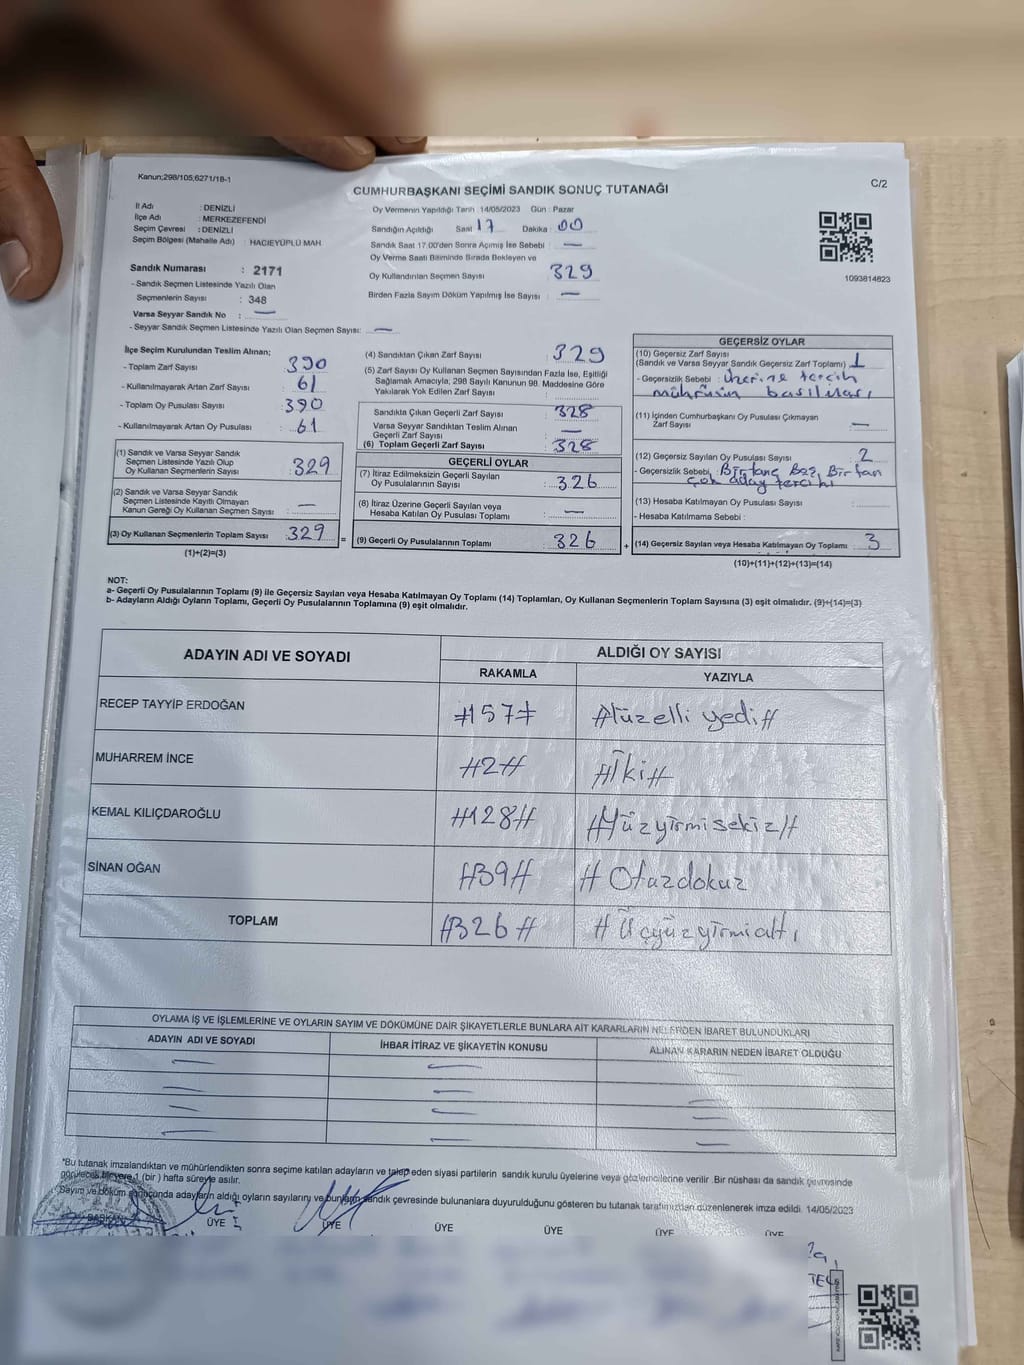 Kanun;298/105;6271/18-1
C/2
CUMHURBAŞKANI SEÇİMİ SANDIK SONUÇ TUTANAĞI
İl Adı : DENİZLİ
İlçe Adı : MERKEZEFENDİ
Seçim Çevresi : DENİZLİ
Seçim Bölgesi (Mahalle Adı) : HACIEYÜPLÜ MAH
Sandık Numarası : 2171
- Sandık Seçmen Listesinde Yazılı Olan
Seçmenlerin Sayısı : 348
Varsa Seyyar Sandık No : —
- Seyyar Sandık Seçmen Listesinde Yazılı Olan Seçmen Sayısı: —
Oy Vermenin Yapıldığı Tarih :14/05/2023 Gün : Pazar
Sandığın Açıldığı Saat 17 Dakika : 00
Sandık Saat 17.00'den Sonra Açılmış İse Sebebi : —
Oy Verme Saati Bitiminde Sırada Bekleyen ve
Oy Kullandırılan Seçmen Sayısı 329
Birden Fazla Sayım Döküm Yapılmış İse Sayısı : —
1093814623
İlçe Seçim Kurulundan Teslim Alınan;
- Toplam Zarf Sayısı : 390
- Kullanılmayarak Artan Zarf Sayısı : 61
- Toplam Oy Pusulası Sayısı : 390
- Kullanılmayarak Artan Oy Pusulası : 61
(1) Sandık ve Varsa Seyyar Sandık
Seçmen Listesinde Yazılı Olup
Oy Kullanan Seçmenlerin Sayısı : 329
(2) Sandık ve Varsa Seyyar Sandık
Seçmen Listesinde Kayıtlı Olmayan
Kanun Gereği Oy Kullanan Seçmen Sayısı : —
(3) Oy Kullanan Seçmenlerin Toplam Sayısı : 329
(1)+(2)=(3)
(4) Sandıktan Çıkan Zarf Sayısı : 329
(5) Zarf Sayısı Oy Kullanan Seçmen Sayısından Fazla İse, Eşitliği
Sağlamak Amacıyla, 298 Sayılı Kanunun 98. Maddesine Göre
Yakılarak Yok Edilen Zarf Sayısı :
Sandıkta Çıkan Geçerli Zarf Sayısı : 328
Varsa Seyyar Sandıktan Teslim Alınan
Geçerli Zarf Sayısı : —
(6) Toplam Geçerli Zarf Sayısı : 328
GEÇERLİ OYLAR
(7) İtiraz Edilmeksizin Geçerli Sayılan
Oy Pusulalarının Sayısı : 326
(8) İtiraz Üzerine Geçerli Sayılan veya
Hesaba Katılan Oy Pusulası Toplamı : —
= (9) Geçerli Oy Pusulalarının Toplamı : 326 +
GEÇERSİZ OYLAR
(10) Geçersiz Zarf Sayısı
(Sandık ve Varsa Seyyar Sandık Geçersiz Zarf Toplamı) : 1
- Geçersizlik Sebebi : Üzerine tercih
mührünün basılması
(11) İçinden Cumhurbaşkanı Oy Pusulası Çıkmayan
Zarf Sayısı : —
(12) Geçersiz Sayılan Oy Pusulası Sayısı : 2
- Geçersizlik Sebebi : Bir tane Boş, Birfan
çok aday tercihi
(13) Hesaba Katılmayan Oy Pusulası Sayısı :
- Hesaba Katılmama Sebebi :
(14) Geçersiz Sayılan veya Hesaba Katılmayan Oy Toplamı : 3
(10)+(11)+(12)+(13)=(14)
NOT:
a- Geçerli Oy Pusulalarının Toplamı (9) ile Geçersiz Sayılan veya Hesaba Katılmayan Oy Toplamı (14) Toplamları, Oy Kullanan Seçmenlerin Toplam Sayısına (3) eşit olmalıdır. (9)+(14)=(3)
b- Adayların Aldığı Oyların Toplamı, Geçerli Oy Pusulalarının Toplamına (9) eşit olmalıdır.
ADAYIN ADI VE SOYADI ALDIĞI OY SAYISI
RAKAMLA YAZIYLA
RECEP TAYYİP ERDOĞAN #157# #Yüzelli yedi#
MUHARREM İNCE #2# #İki#
KEMAL KILIÇDAROĞLU #128# #Yüzyirmisekiz#
SİNAN OĞAN #39# #Otuzdokuz
TOPLAM #326# #Üçyüzyirmialtı
OYLAMA İŞ VE İŞLEMLERİNE VE OYLARIN SAYIM VE DÖKÜMÜNE DAİR ŞİKAYETLERLE BUNLARA AİT KARARLARIN NELERDEN İBARET BULUNDUKLARI
ADAYIN ADI VE SOYADI İHBAR İTİRAZ VE ŞİKAYETİN KONUSU ALINAN KARARIN NEDEN İBARET OLDUĞU
*Bu tutanak imzalandıktan ve mühürlendikten sonra seçime katılan adayların ve talep eden siyasi partilerin sandık kurulu üyelerine veya gözlemcilerine verilir. Bir nüshası da sandık çevresinde
görülecek bir yere 1 (bir) hafta süreyle asılır.
Sayım ve döküm sonucunda adayların aldığı oyların sayılarını ve bunların sandık çevresinde bulunanlara duyurulduğunu gösteren bu tutanak tarafımızdan düzenlenerek imza edildi. 14/05/2023
BAŞKAN ÜYE ÜYE ÜYE ÜYE ÜYE ÜYE